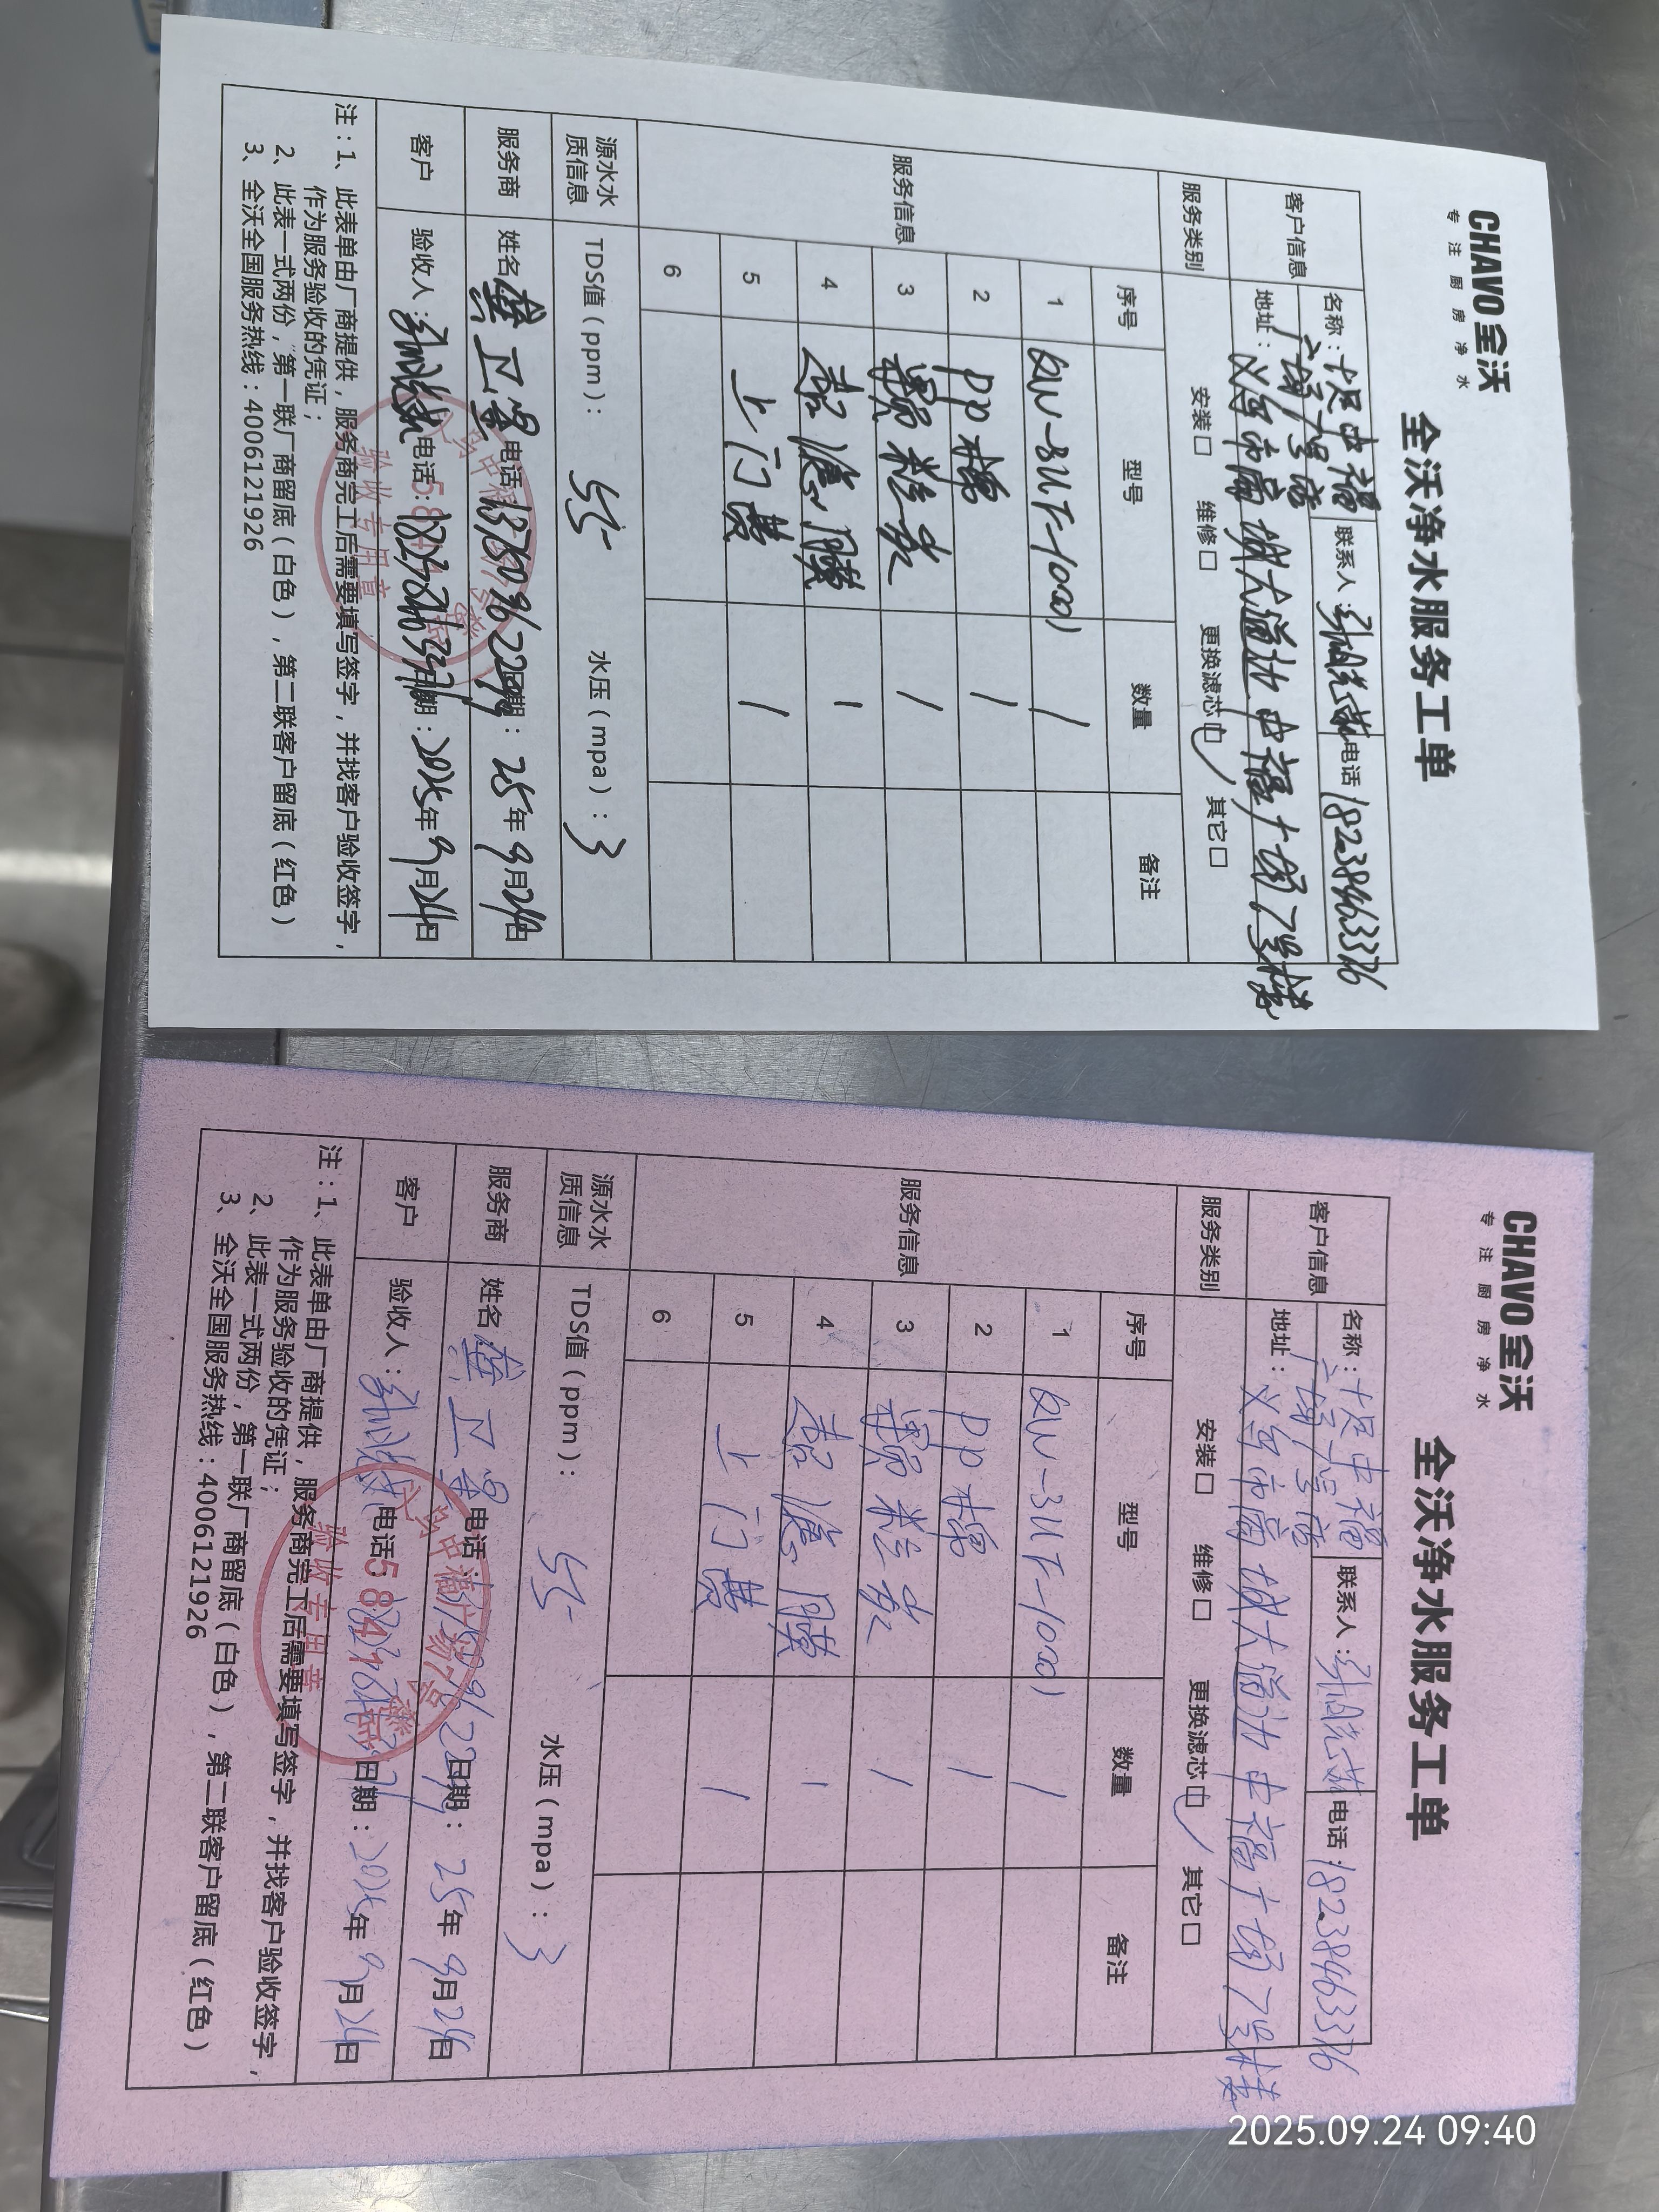 CHAVO 全沃
专注厨房净水
全沃净水服务工单
客户信息
名称：中福广场7号店
联系人：
电话 18238463376
地址：义乌市 城大道 中福广场7号楼
服务类别
安装□ 维修□ 更换滤芯□ 其它□
服务信息
序号 型号 数量 备注
1 QW-3UF-1000 1
2 PP棉 1
3 颗粒炭 1
4 超滤膜 1
5 上门费 1
6
源水水质信息
TDS值（ppm）： 55 水压（mpa）：3
服务商
姓名 电话：13750962299 日期：25年9月24日
客户
验收人： 电话： 日期：2025年9月24日
验收专用章
注：1、此表单由厂商提供，服务商完工后需要填写签字，并找客户验收签字，
作为服务验收的凭证；
2、此表一式两份，第一联厂商留底（白色），第二联客户留底（红色）
3、全沃全国服务热线：4006121926
CHAVO 全沃
专注厨房净水
全沃净水服务工单
客户信息
名称：中福广场7号店
联系人：
电话 18238463376
地址：义乌市 城大道 中福广场7号楼
服务类别
安装□ 维修□ 更换滤芯□ 其它□
服务信息
序号 型号 数量 备注
1 QW-3UF-1000 1
2 PP棉 1
3 颗粒炭 1
4 超滤膜 1
5 上门费 1
6
源水水质信息
TDS值（ppm）： 55 水压（mpa）：3
服务商
姓名 电话：13750962299 日期：25年9月24日
客户
验收人： 电话： 日期：2025年9月24日
验收专用章
注：1、此表单由厂商提供，服务商完工后需要填写签字，并找客户验收签字，
作为服务验收的凭证；
2、此表一式两份，第一联厂商留底（白色），第二联客户留底（红色）
3、全沃全国服务热线：4006121926
2025.09.24 09:40